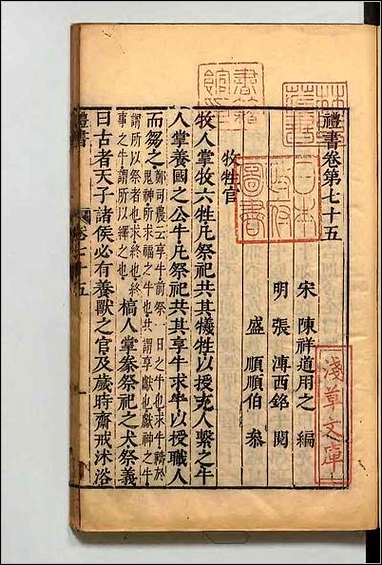 禮書卷第七十五
宋 陳祥道用之 編
明 張 溥西銘 閱
盛 順順伯 叅
牧牲官
牧人掌牧六牲凡祭祀共其犧牲以授充人繫之牛
人掌養國之公牛凡祭祀共其享牛求牛以授職人
而芻之
鄭司農云享牛前祭一日之牛也求牛禱於
鬼神所求福之牛也 謂享獻也獻神之牛
謂所以祭者也求終也終
事之牛謂所以繹之也
槁人掌豢祭祀之犬祭義
曰古者天子諸侯必有養獸之官及歲時齋戒沐浴
禮書
卷七十五
一
淺草文庫
日本政府圖書
書籍館印